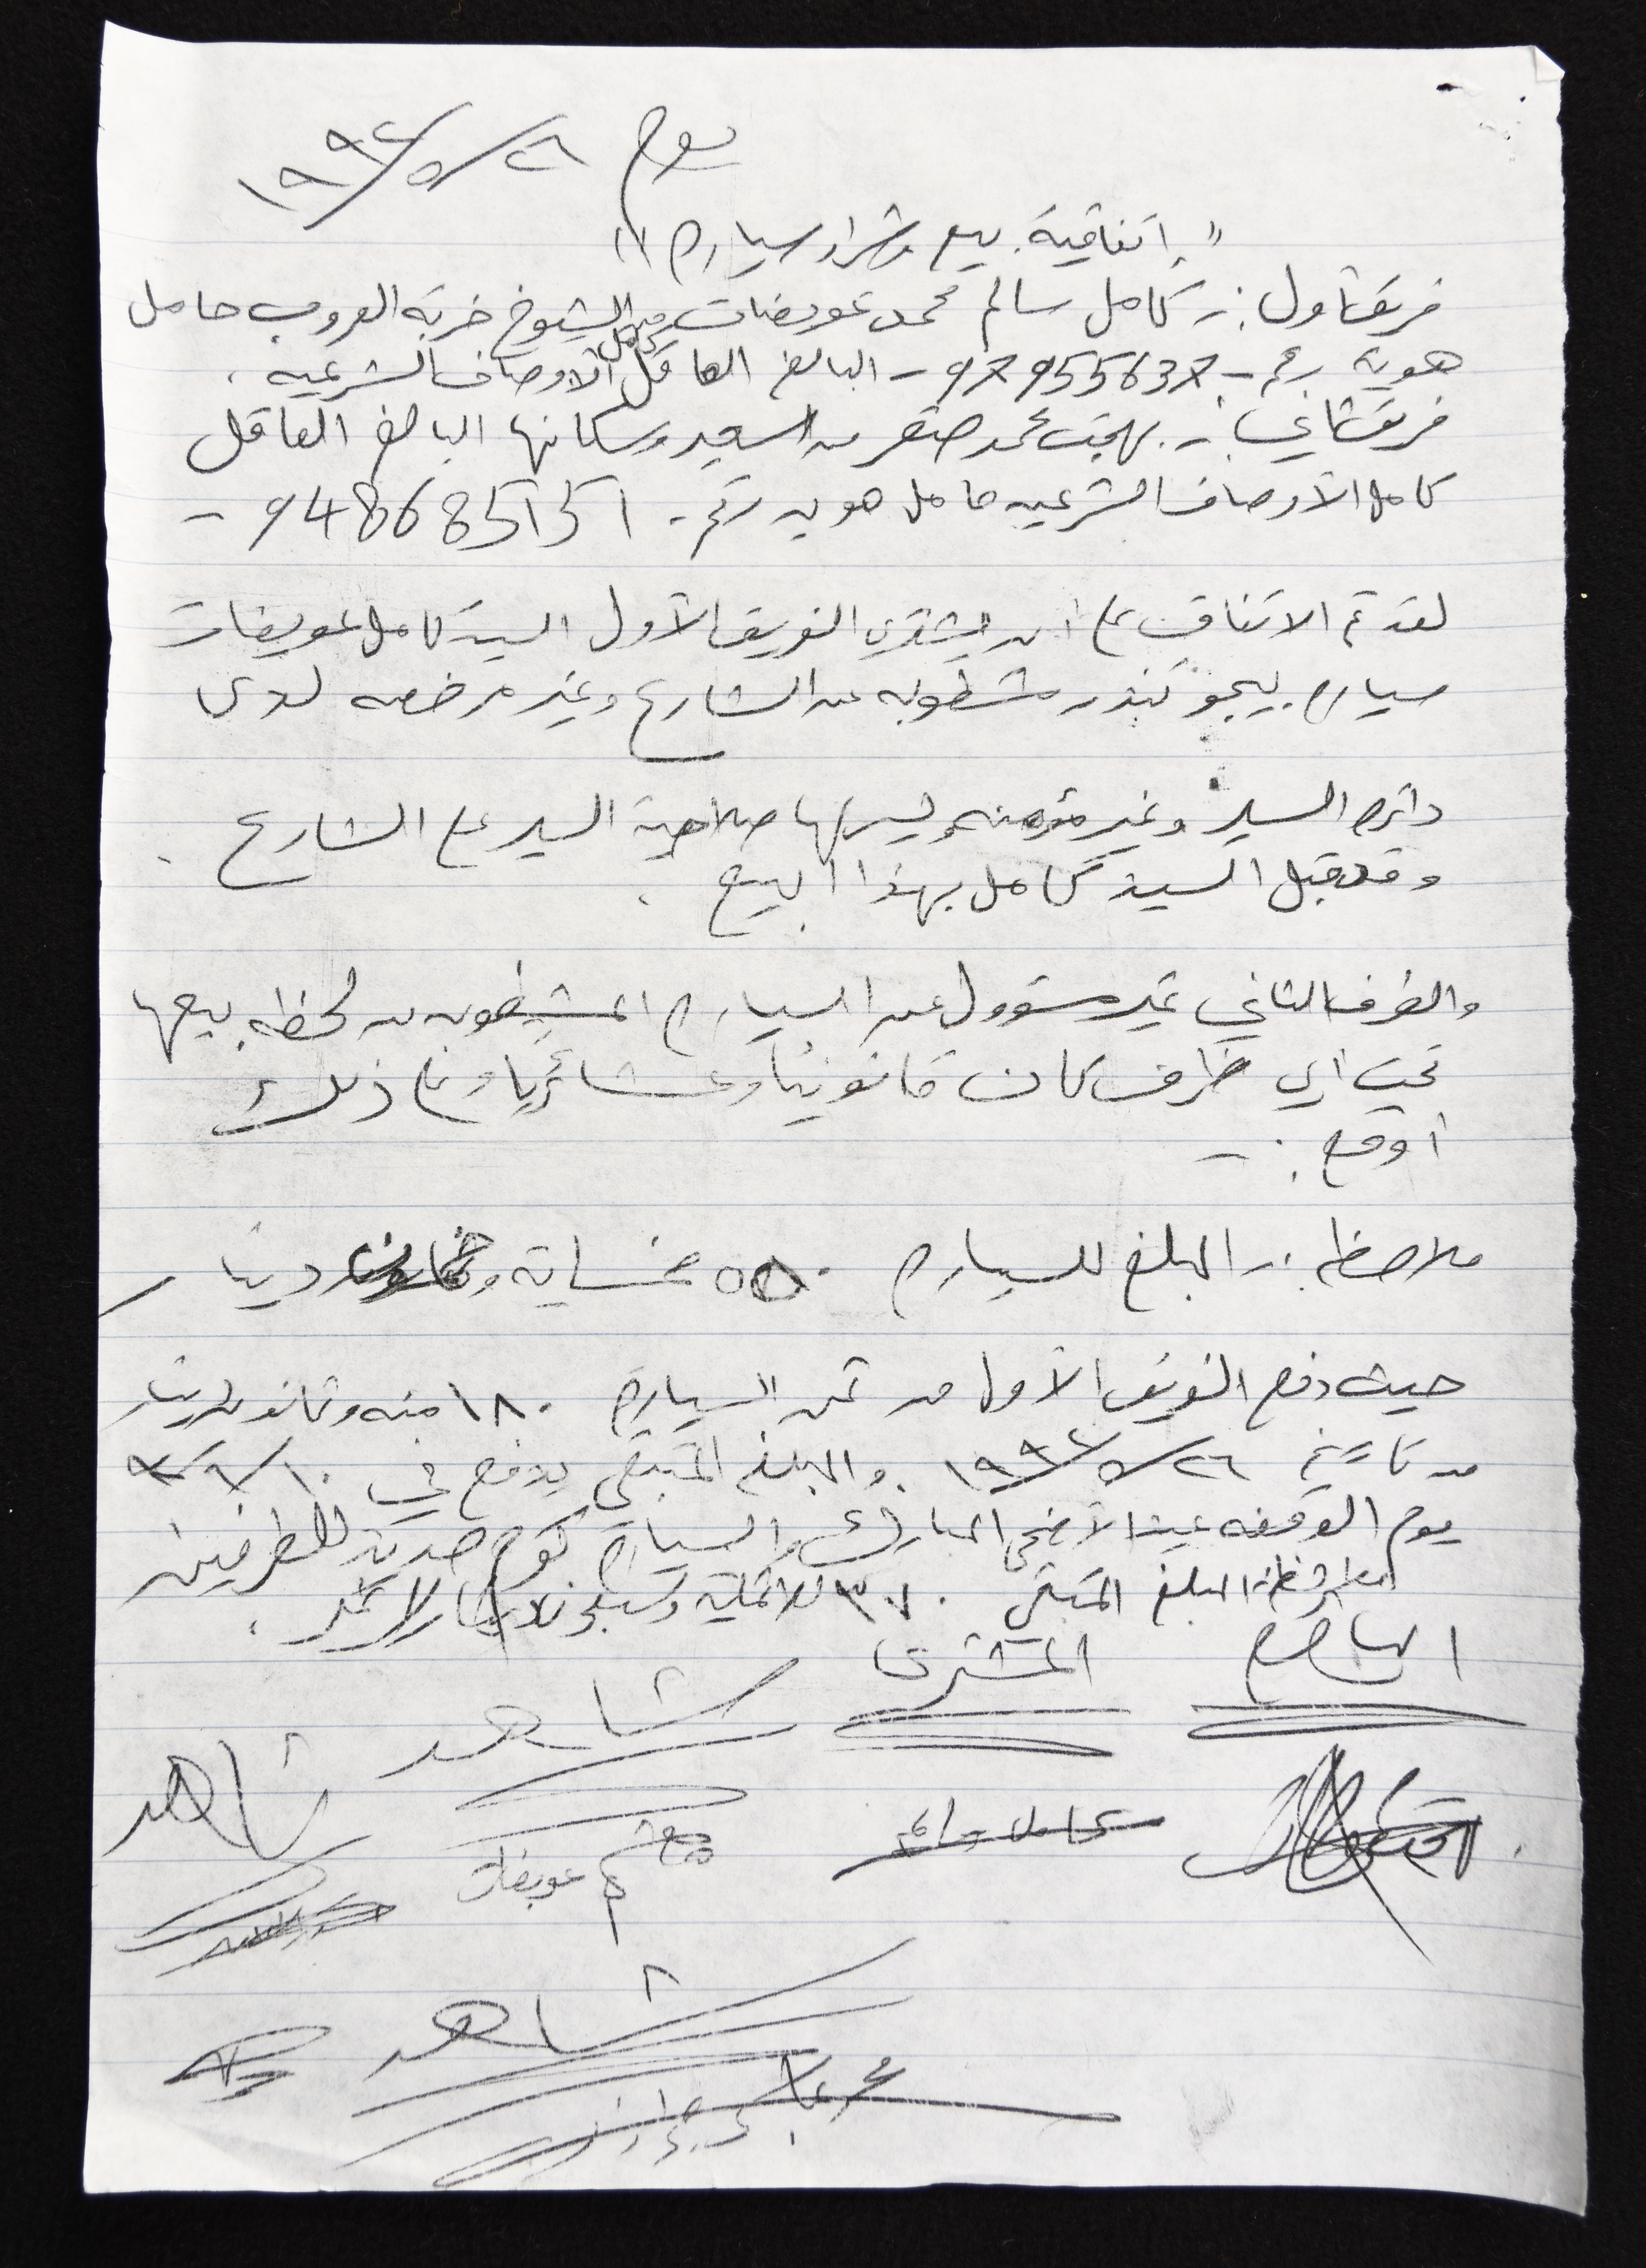 يوم ٢٦/٥/١٩٩٢
" اتفاقية بيع وشراء سياره "
فريق أول :- كامل سالم محمد عويضات من الشيوخ خربة العروب حامل
هوية رقم - 97955637 - البالغ العاقل كامل الأوصاف الشرعيه .
فريق ثاني :- بهجت محمد صقر من السعير وسكانها البالغ العاقل
كامل الأوصاف الشرعيه حامل هويه رقم - 94868515 -
لقد تم الاتفاق على أن يشتري الفريق الأول السيد كامل عويضات
سياره بيجو تندر مشطوبه عن الشارع وغير مرخصه لدى
دائره السير وغير مؤمنه وليس لها صلاحية السير على الشارع .
وقد قبل السيد كامل بهذا البيع .
والطرف الثاني غير مسؤول عن السياره المشطوبه من لحظه بيعها
تحت أي ظرف كان قانونياً وعشائرياً وعلى ذلك
أوقع :-
ملاحظه :- المبلغ للسياره ٥٥٠ خمسماية و دينار
حيث دفع الفريق الأول من ثمن السياره ١٨٠ مئه وثمانون دينار
من تاريخ ٢٦/٥/١٩٩٢ والمبلغ المتبقي يدفع في ١٠/٦/٩٢
يوم الوقفه عيد الأضحى المبارك والسياره
المبلغ المتبقي ٣٧٠ ثلاثماية وسبعون دينار لا غير .
البائع المشتري
شاهد
شاهد
عويضات
شاهد
محمد